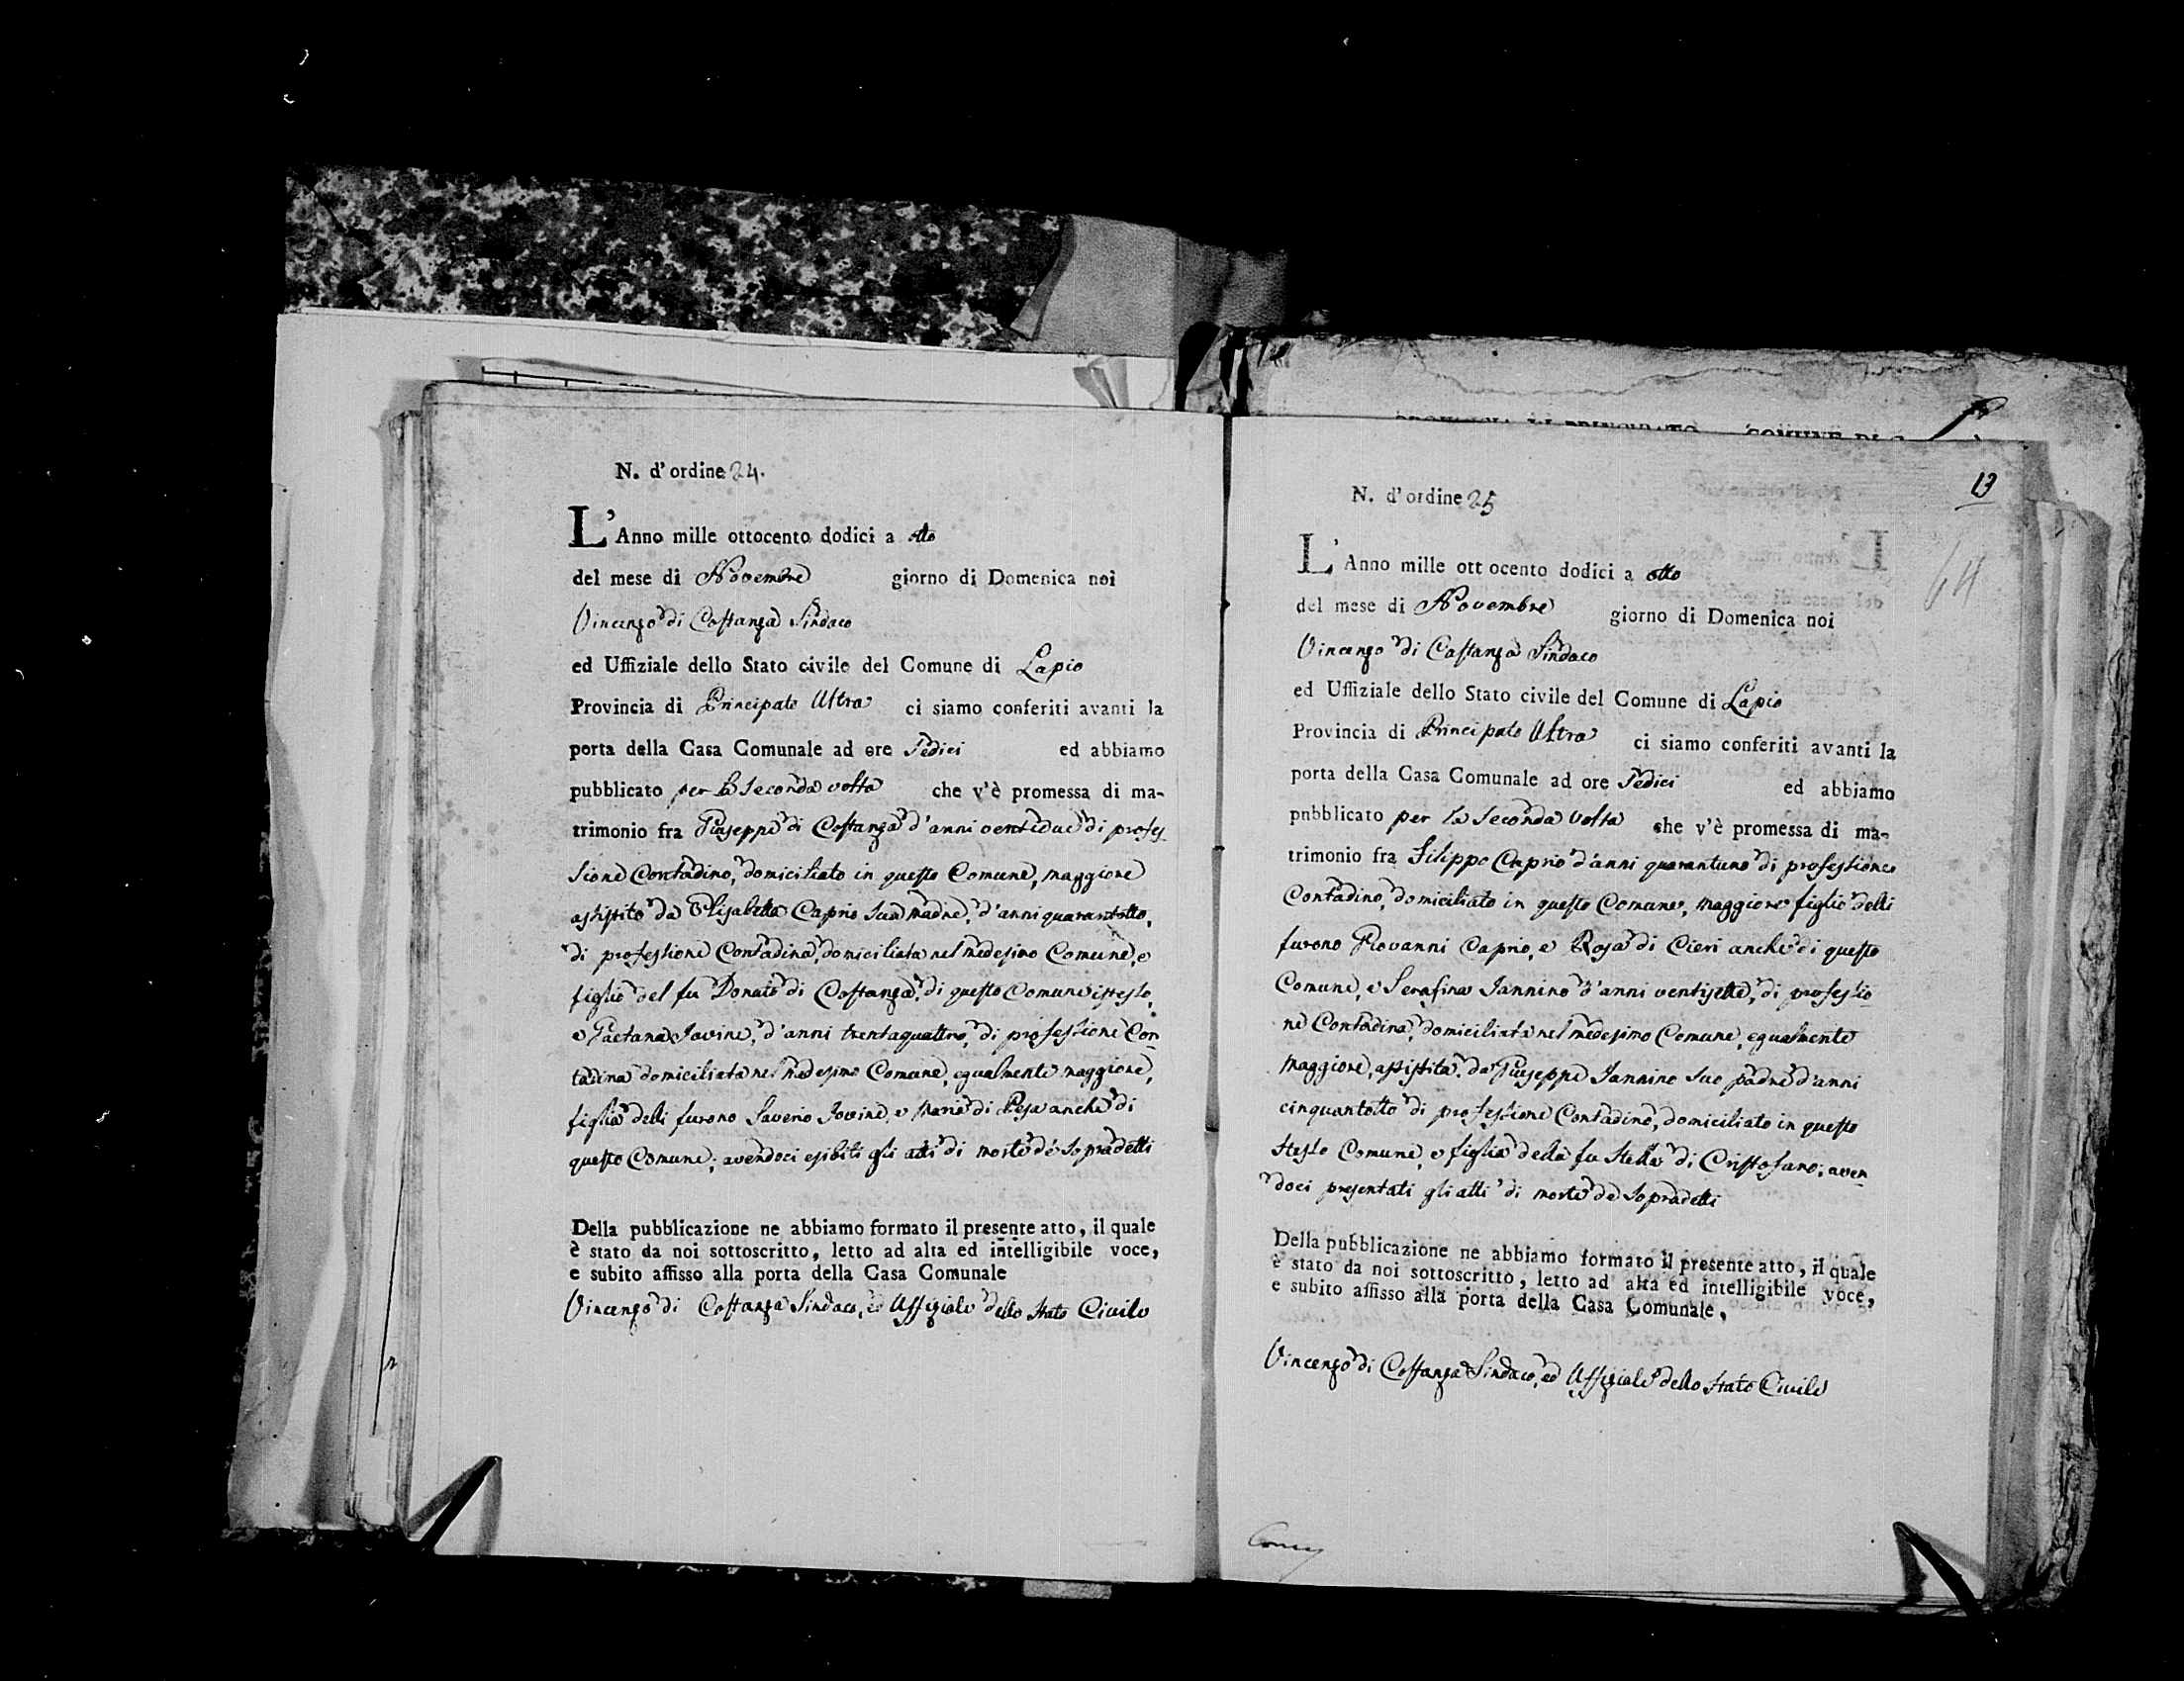 N. d'ordine 24.
L'Anno mille ottocento dodici a otto
del mese di Novembre giorno di Domenica noi
Vincenzo di Costanza Sindaco
ed Uffiziale dello Stato civile del Comune di Lapio
Provincia di Principato Ultra ci siamo conferiti avanti la
porta della Casa Comunale ad ore Sedici ed abbiamo
pubblicato per la Seconda volta che v'è promessa di ma-
trimonio fra Giuseppe di Costanza d'anni ventidue di profes-
sione Contadino, domiciliato in questo Comune, maggiore
assistito da Elisabetta Caprio sua madre, d'anni quarantotto,
di professione Contadina, domiciliata nel medesimo Comune, e
figlio del fu Donato di Costanza, di questo Comune istesso,
e Gaetana Iovine, d'anni trentaquattro, di professione Con-
tadina domiciliata nel medesimo Comune, egualmente maggiore,
figlia delli furono Saverio Iovine, e Maria di Pesa anche di
questo Comune; avendoci esibiti gli atti di morte de' sopradetti
Della pubblicazione ne abbiamo formato il presente atto, il quale
è stato da noi sottoscritto, letto ad alta ed intelligibile voce,
e subito affisso alla porta della Casa Comunale
Vincenzo di Costanza Sindaco, ed Uffiziale dello Stato Civile
13
64
N. d'ordine 25
L'Anno mille ottocento dodici a otto
del mese di Novembre giorno di Domenica noi
Vincenzo di Costanza Sindaco
ed Uffiziale dello Stato civile del Comune di Lapio
Provincia di Principato Ultra ci siamo conferiti avanti la
porta della Casa Comunale ad ore Sedici ed abbiamo
pubblicato per la Seconda volta che v'è promessa di ma-
trimonio fra Filippo Caprio d'anni quarantuno di professione
Contadino, domiciliato in questo Comune, maggiore figlio delli
furono Giovanni Caprio, e Rosa di Cieri anche di questo
Comune, e Serafina Iannino d'anni ventisette, di professio-
ne Contadina, domiciliata nel medesimo Comune, egualmente
maggiore, assistita da Giuseppe Iannino suo padre d'anni
cinquantotto di professione Contadino, domiciliato in questo
stesso Comune, e figlia della fu Stella di Cristofano; aven-
doci presentati gli atti di morte de sopradetti
Della pubblicazione ne abbiamo formato il presente atto, il quale
è stato da noi sottoscritto, letto ad alta ed intelligibile voce,
e subito affisso alla porta della Casa Comunale,
Vincenzo di Costanza Sindaco, ed Uffiziale dello Stato Civile